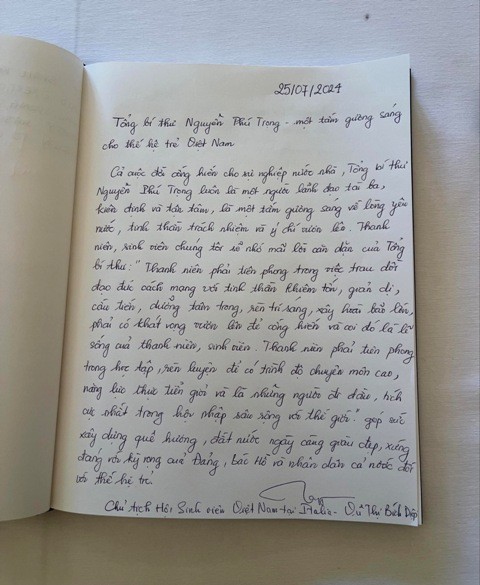 25/07/2024
Tổng bí thư Nguyễn Phú Trọng - một tấm gương sáng
cho thế hệ trẻ Việt Nam
Cả cuộc đời cống hiến cho sự nghiệp nước nhà, Tổng bí thư
Nguyễn Phú Trọng luôn là một người lãnh đạo tài ba,
kiên định và tận tâm, là một tấm gương sáng về lòng yêu
nước, tinh thần trách nhiệm và ý chí vươn lên. Thanh
niên, sinh viên chúng tôi sẽ nhớ mãi lời căn dặn của Tổng
bí thư: "Thanh niên phải tiên phong trong việc trau dồi
đạo đức cách mạng với tinh thần khiêm tốn, giản dị,
cầu tiến, dưỡng tâm trong, rèn trí sáng, xây hoài bão lớn,
phải có khát vọng vươn lên để cống hiến và coi đó là lẽ
sống của thanh niên, sinh viên. Thanh niên phải tiên phong
trong học tập, rèn luyện để có trình độ chuyên môn cao,
năng lực thực tiễn giỏi và là những người đi đầu, tích
cực nhất trong hội nhập sâu rộng với thế giới." góp sức
xây dựng quê hương, đất nước ngày càng giàu đẹp, xứng
đáng với kỳ vọng của Đảng, bác Hồ và nhân dân cả nước đối
với thế hệ trẻ.
Chủ tịch Hội Sinh viên Việt Nam tại Italia - Vũ Thị Bích Diệp